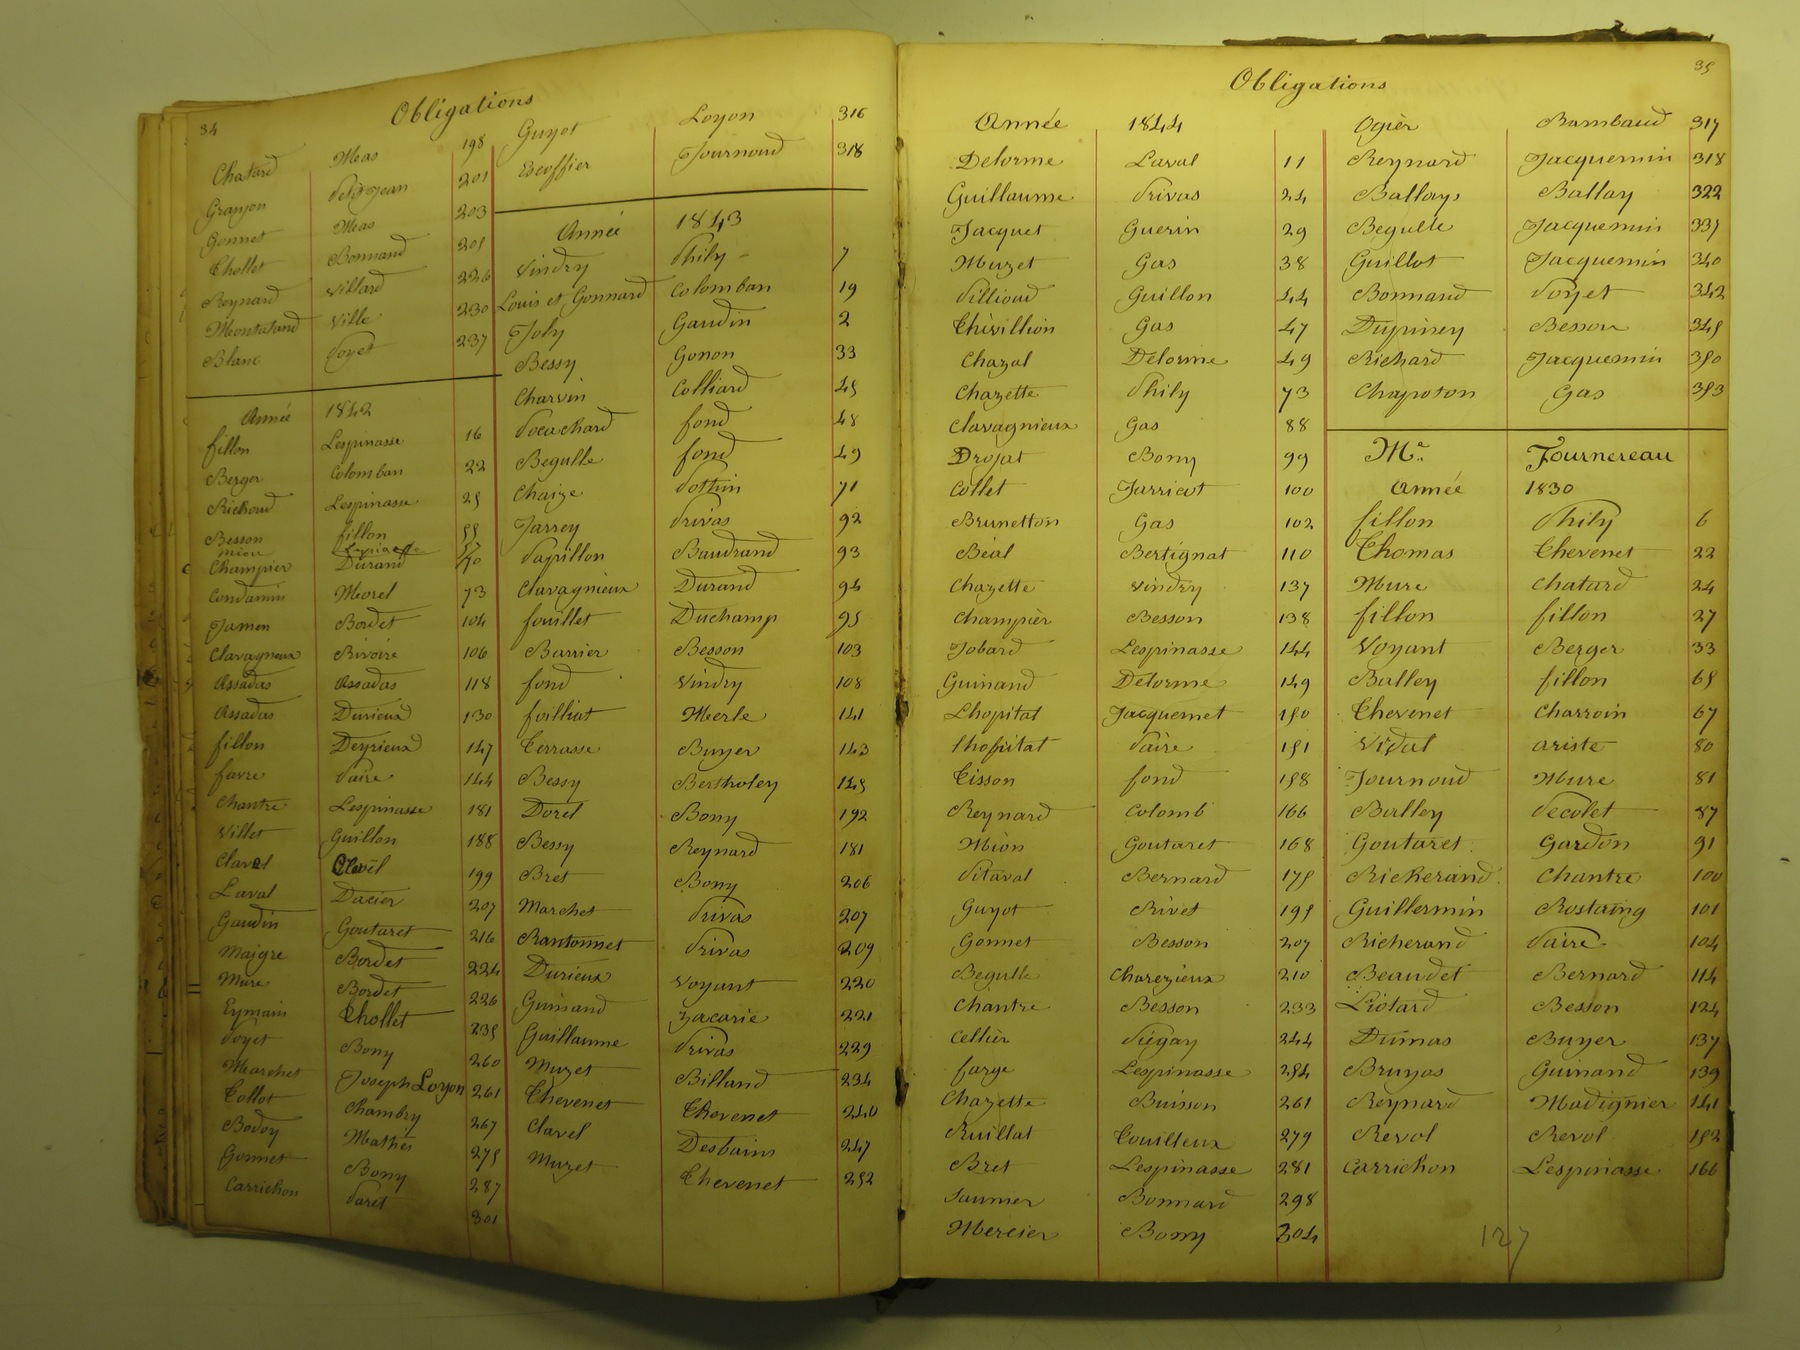 34
Obligations
Chatard Meas 198
Granjon Petitjean 201
Gonnet Meas 203
Chollet Bonnand 205
Reynard Villard 226
Montaland Ville 230
Blanc Poyet 237
Année 1842
fillon Lespinasse 16
Berger Colomban 22
Richoud Lespinasse 25
Besson fillon 55
Champier Durand 70
Condamin Morel 73
Jamen Bordet 104
Clavagneux Rivoire 106
Assadas Assadas 118
Assadas Durieux 130
fillon Deyrieux 147
favre Paire 144
Chantre Lespinasse 181
Villet Guillon 188
Clavel Clavel 199
Laval Dacier 207
Gaudin Goutaret 216
Maigre Bordet 224
Mure Bordet 226
Eymain Chollet 235
Poyet Bony 260
Marchet Joseph Loyon 261
Collot Chambry 267
Bodoy Mathès 275
Gonnet Bony 287
Carrichon Paret 301
Guyot Loyon 316
Escoffier Journoud 318
Année 1843
Vindry Phily 7
Louis et Gonnard Colomban 19
Joly Gaudin 2
Bessy Gonon 33
Charvin Colliard 45
Pocachard fond 48
Begulle fond 49
Chaize Pothin 71
Jarrey Privas 92
Papillon Baudrand 93
Clavagnieux Durand 94
fouillet Duchamp 95
Barrier Besson 103
fond Vindry 108
foilliat Merle 141
Terrasse Buyer 143
Bessy Bertholey 145
Dorel Bony 192
Bessy Reynard 181
Bret Bony 206
Marchet Privas 207
Rantonnet Privas 209
Durieux Voyant 220
Guinand Zacarie 221
Guillaume Privas 229
Muzet Billand 234
Chevenet Chevenet 240
Clavel Desbains 247
Muzet Chevenet 252
35
Obligations
Année 1844
Delorme Laval 11
Guillaume Privas 24
Jacquet Guerin 29
Muzet Gas 38
Pillioud Guillon 44
Thévillion Gas 47
Chazal Delorme 49
Chazette Phily 73
Clavagnieux Gas 88
Drojat Bony 99
Collet Jarricot 100
Brunetton Gas 102
Béal Bertignat 110
Chazette Vindry 137
Champièr Besson 138
Jobard Lespinasse 144
Guinand Delorme 149
Lhopital Jacquemet 150
Lhopital Paire 151
Tisson fond 158
Reynard Colomb 166
Mion Goutaret 168
Pitaval Bernard 175
Guyot Rivet 195
Gonnet Besson 207
Begulle Charezieux 210
Chantre Besson 233
Cellièr Piégay 244
farge Lespinasse 254
Chazette Buisson 261
Ruillat Couilleux 279
Bret Lespinasse 281
Saumer Bonnard 298
Mercier Bony 304
Ogier Bambaud 317
Reynard Jacquemin 318
Ballays Ballay 322
Begulle Jacquemin 337
Guillot Jacquemin 340
Bonnand Poyet 342
Dupiney Besson 345
Richard Jacquemin 350
Chapoton Gas 353
Me. Fournereau
Année 1830
fillon Phily 6
Thomas Chevenet 22
Mure Chatard 24
fillon fillon 27
Voyant Berger 33
Balley fillon 65
Chevenet Charroin 67
Vidal ariste 80
Journoud Mure 81
Balley Pecolet 87
Goutaret Gardon 91
Richerand Chantre 100
Guillermin Rostaing 101
Richerand Paire 104
Beaudet Bernard 114
Liotard Besson 124
Dumas Buyer 137
Bruyas Guinand 139
Reynard Madignier 141
Revol Revol 152
Carrichon Lespinasse 166
127